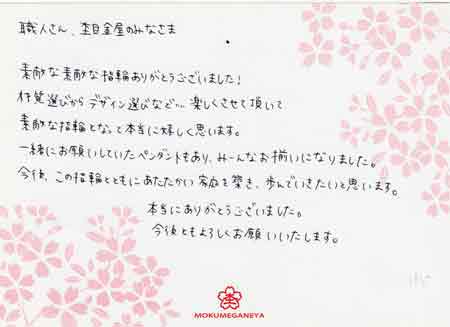 職人さん、杢目金屋のみなさま
素敵な素敵な指輪ありがとうございました!
材質選びからデザイン選びなど… 楽しくさせて頂いて
素敵な指輪となって本当に嬉しく思います。
一緒にお願いしていたペンダントもあり、みーんなお揃いになりました。
今後、この指輪とともにあたたかい家庭を築き、歩んでいきたいと思います。
本当にありがとうございました。
今後ともよろしくお願いいたします。
MOKUMEGANEYA